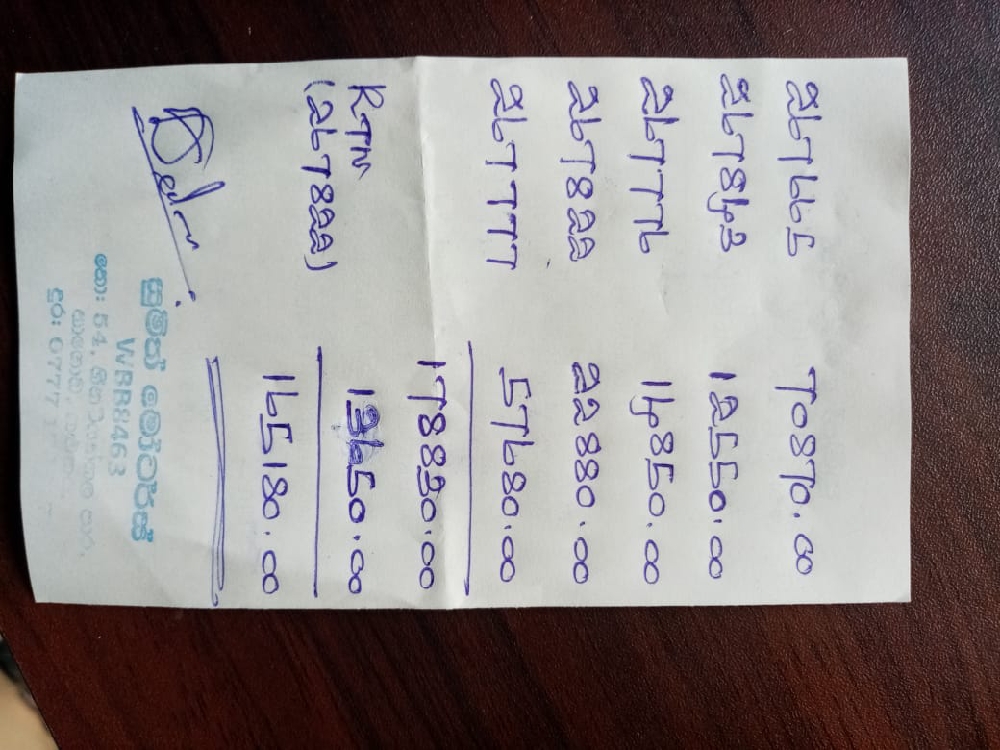 267665 70870.00
267843 12550.00
267776 14850.00
267822 22880.00
267777 57680.00
178830.00
RTN 13650.00
(267822)
165180.00
WBB8463
නො: 54,
දු: 0777